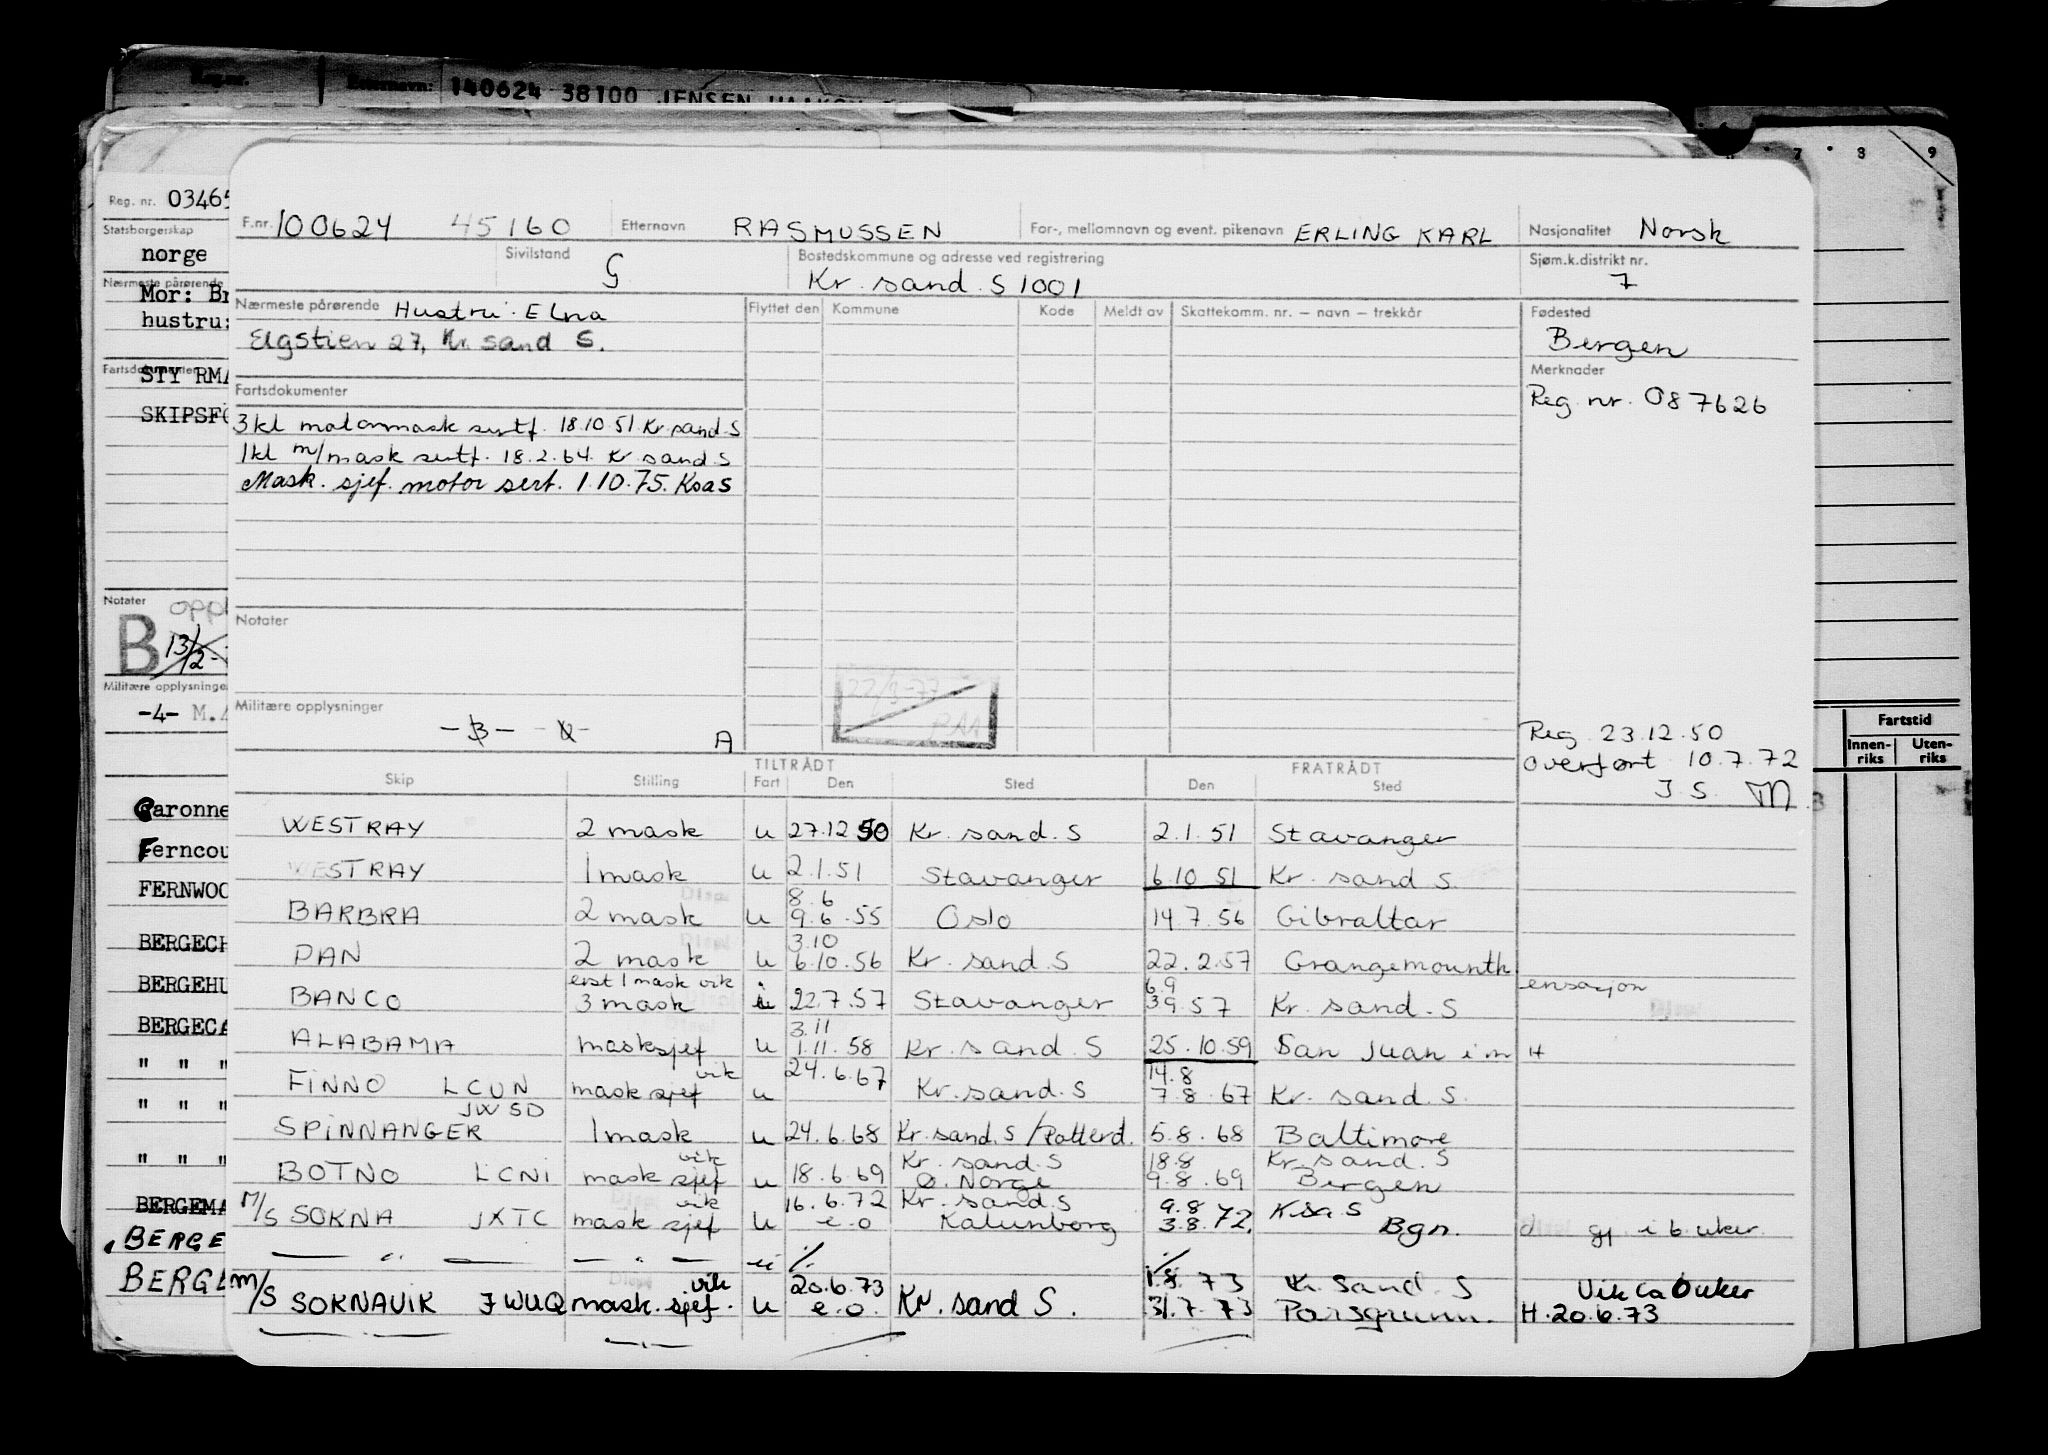 Reg.nr. Etternavn: 140624 38100 JENSEN HAAKON
7 8 9
Reg. nr. 03465
Statsborgerskap
norge
Nærmeste pårørende
Mor: Br
hustru:
Fartsdokumenter
STYRMA
SKIPSFØ
Notater
B 13/2-
Militære opplysninge
-4- M.
Garonne
Ferncou
FERNWOO
BERGECH
BERGEHU
BERGECA
" " "
" " "
" " "
BERGEMA
BERGE
BERGL
Fartstid
Innen-riks Uten-riks
F.nr. 100624 45160 Etternavn RASMUSSEN For-, mellomnavn og event. pikenavn ERLING KARL Nasjonalitet Norsk
Sivilstand G Bostedskommune og adresse ved registrering Kr. sand. S 1001 Sjøm.k.distrikt nr. 7
Nærmeste pårørende Hustru: Elna
Elgstien 27, Kr. sand S.
Flyttet den Kommune Kode Meldt av Skattekomm. nr. – navn – trekkår
Fødested
Bergen
Merknader
Reg. nr. 087626
Fartsdokumenter
3 kl motormask sertf. 18.10.51. Kr. sand. S
1 kl m/mask sertf. 18.2.64. Kr sand. S
Mask. sjef. motor sert. 1.10.75. Krsas
Notater
22/3-77
Militære opplysninger
-B- -U- A
Reg. 23.12.50
Overført 10.7.72
J S.
TILTRÅDT FRATRÅDT
Skip Stilling Fart Den Sted Den Sted
WESTRAY 2 mask u 27.12 50 Kr. sand. S 2.1.51 Stavanger
WESTRAY 1 mask u 2.1.51 Stavanger 6.10 51 Kr. sand S.
BARBRA 2 mask u 8.6 9.6.55 Oslo 14.7.56 Gibraltar
PAN 2 mask u 3.10 6.10.56 Kr. sand. S 22.2.57 Grangemounth
BANCO erst 1 mask vik 3 mask i 22.7.57 Stavanger 6.9 3.9.57 Kr. sand. S ensasjon
ALABAMA masksjef u 3.11 1.11.58 Kr. sand. S 25.10.59 San Juan i m H
FINNO LCUN mask sjef vik u 24.6.67 Kr. sand. S 14.8 7.8.67 Kr. sand. S.
SPINNANGER JWSD 1 mask u 24.6.68 Kr. sand. S/Rotterd. 5.8.68 Baltimore
BOTNO LCNI mask sjef vik u 18.6.69 Kr. sand. S Ø. Norge 18.8 9.8.69 Kr. sand. S Bergen
M/S SOKNA JXTC mask sjef vik u 16.6.72 e.o Kr. sand. S Kalunborg 9.8 3.8.72. K.sa S Bgn. d gj i 6 uker.
— " — — " — " ./. ./.
M/S SOKNAVIK JWUQ mask. sjef. vik u 20.6.73 e.o. Kr. sand S. 1.8.73 31.7.73 Kr. Sand. S Porsgrunn. Vik ca 6 uker
H. 20.6.73